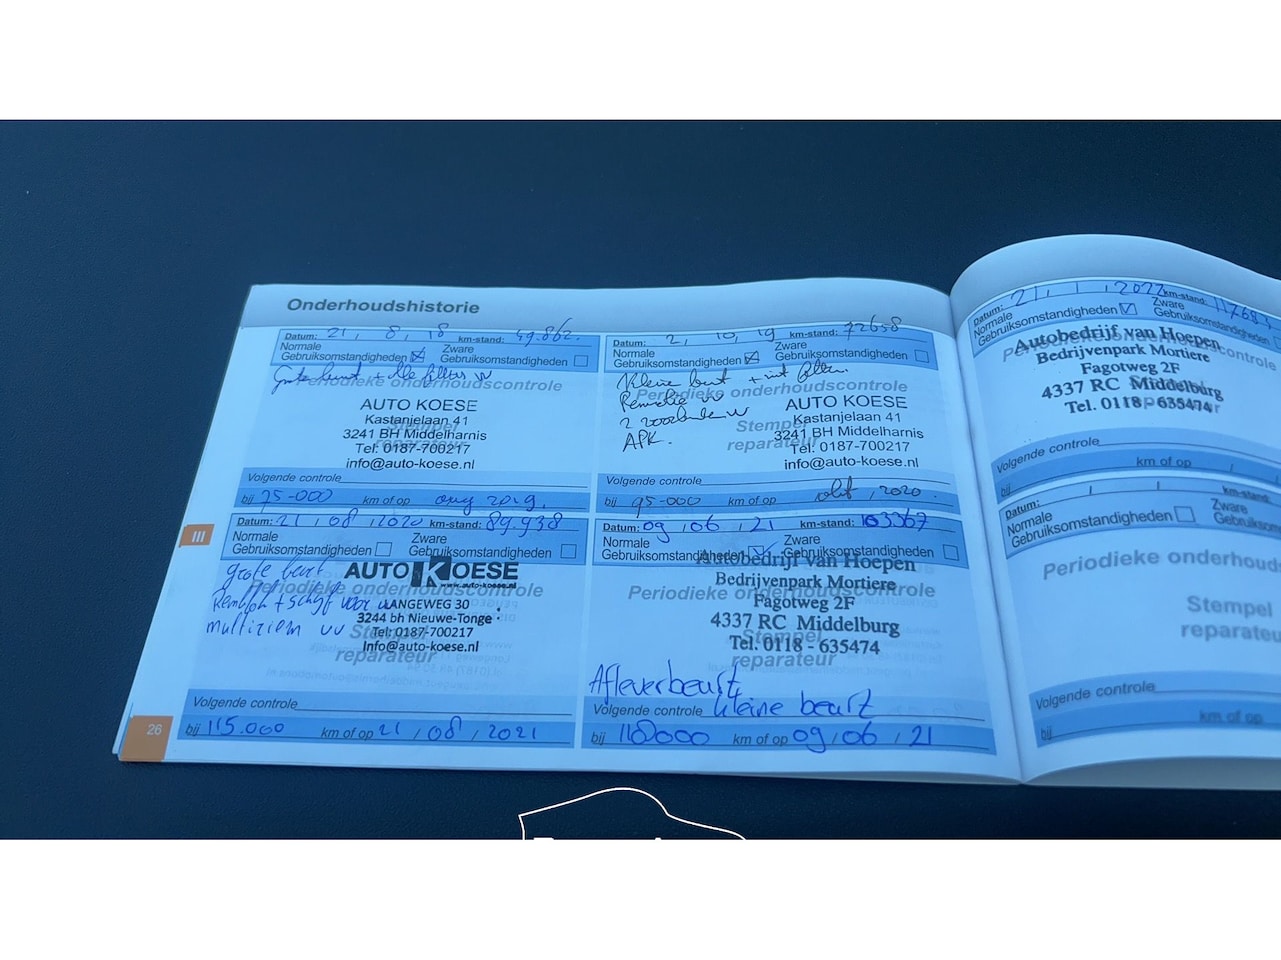 Onderhoudshistorie
Datum: 21, 8, 18 km-stand: 49.862.
Normale Gebruiksomstandigheden Zware Gebruiksomstandigheden
Grote beurt + alle filters vv
Periodieke onderhoudscontrole
AUTO KOESE
Kastanjelaan 41
Stempel
3241 BH Middelharnis
reparateur
Tel: 0187-700217
info@auto-koese.nl
Volgende controle
bij 75-000 km of op aug 2019.
Datum: 2, 10, 19 km-stand: 72658
Normale Gebruiksomstandigheden Zware Gebruiksomstandigheden
Kleine beurt + int filter.
Periodieke onderhoudscontrole
Remolie vv
AUTO KOESE
2 voorbanden vv
Kastanjelaan 41
Stempel
APK.
3241 BH Middelharnis
reparateur
Tel: 0187-700217
info@auto-koese.nl
Volgende controle
bij 95-000 km of op okt, 2020.
III
Datum: 21, 08, 2020 km-stand: 89.938
Normale Gebruiksomstandigheden Zware Gebruiksomstandigheden
grote beurt
AUTO KOESE
www.auto-koese.nl
Periodieke onderhoudscontrole
Remblok + schijf voor vv
LANGEWEG 30
3244 bh Nieuwe-Tonge
multiriem vv
Stempel
Tel: 0187-700217
Info@auto-koese.nl
reparateur
Volgende controle
bij 115.000 km of op 21 / 08 / 2021
26
Datum: 09, 06, 21 km-stand: 103367
Normale Gebruiksomstandigheden Zware Gebruiksomstandigheden
Autobedrijf van Hoepen
Bedrijvenpark Mortiere
Periodieke onderhoudscontrole
Fagotweg 2F
4337 RC Middelburg
Stempel
Tel. 0118 - 635474
reparateur
Afleverbeurt
Volgende controle kleine beurt
bij 118000 km of op 09 / 06 / 21
Datum: 21, 1, 2022 km-stand:
Normale Gebruiksomstandigheden Zware Gebruiksomstandigheden
Autobedrijf van Hoepen
Periodieke onderhoudscontrole
Bedrijvenpark Mortiere
Fagotweg 2F
4337 RC Middelburg
Tel. 0118 - 635474
Volgende controle
bij km of op
Datum: km-stand:
Normale Gebruiksomstandigheden Zware
Periodieke
Stempel
Volgende controle
bij km of op